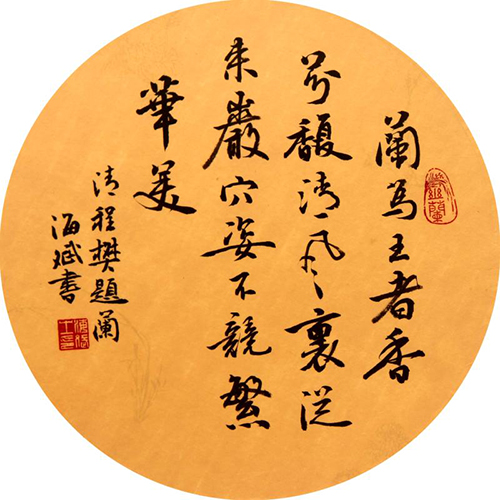 蘭為王者香
芬馥清風裏從
来巖穴姿不競繁
華美
清程樊題蘭
海斌書